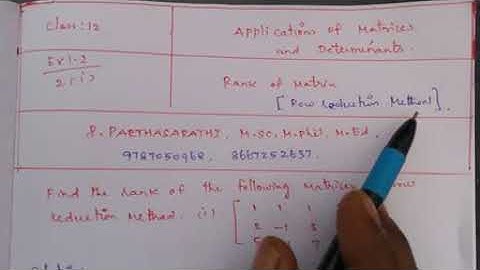 Class: 12
Applications of Matrices
and Determinants.
Ex 1.2
2 (i)
Rank of Matrix
[Row reduction Method].
P. PARTHASARATHI, M.Sc, M.Phil, M.Ed,
9787050968, 8667252637.
Find the rank of the following Matrices
row
reduction Method. (i)
1 1 1
2 -1 3
5 7